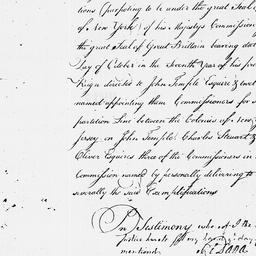 tions (purporting to be under the great Seal of
of New York) of his Majestys Commission
the great Seal of Great Brittain bearing date
Day of October in the Seventh Year of his
Reign directed to John Temple Esquire &
named appointing them Commissioners for
partition Line between the Colonies of New
Jersey, on John Temple, Charles Stuart &
Oliver Esquires three of the Commissioners in
Commission named by personally delivering to
severally the said Exemplifications
In Testimony who
mentioned